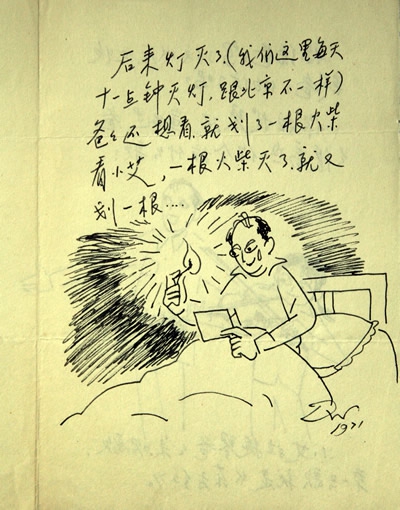 后来灯灭了.(我们这里每天
十一点钟灭灯,跟北京不一样)
爸々还想看.就划了一根火柴
看小艾,一根火柴灭了.就又
划一根....
1971